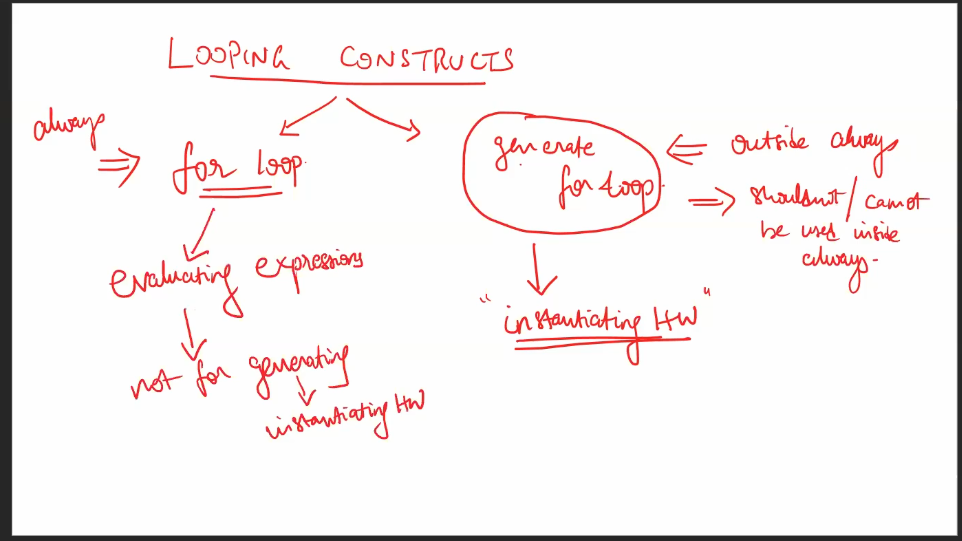 LOOPING CONSTRUCTS
always
for loop
evaluating expressions
not for generating
instantiating HW
generate
for loop
outside always
shouldnot / cannot
be used inside
always.
"instantiating HW"